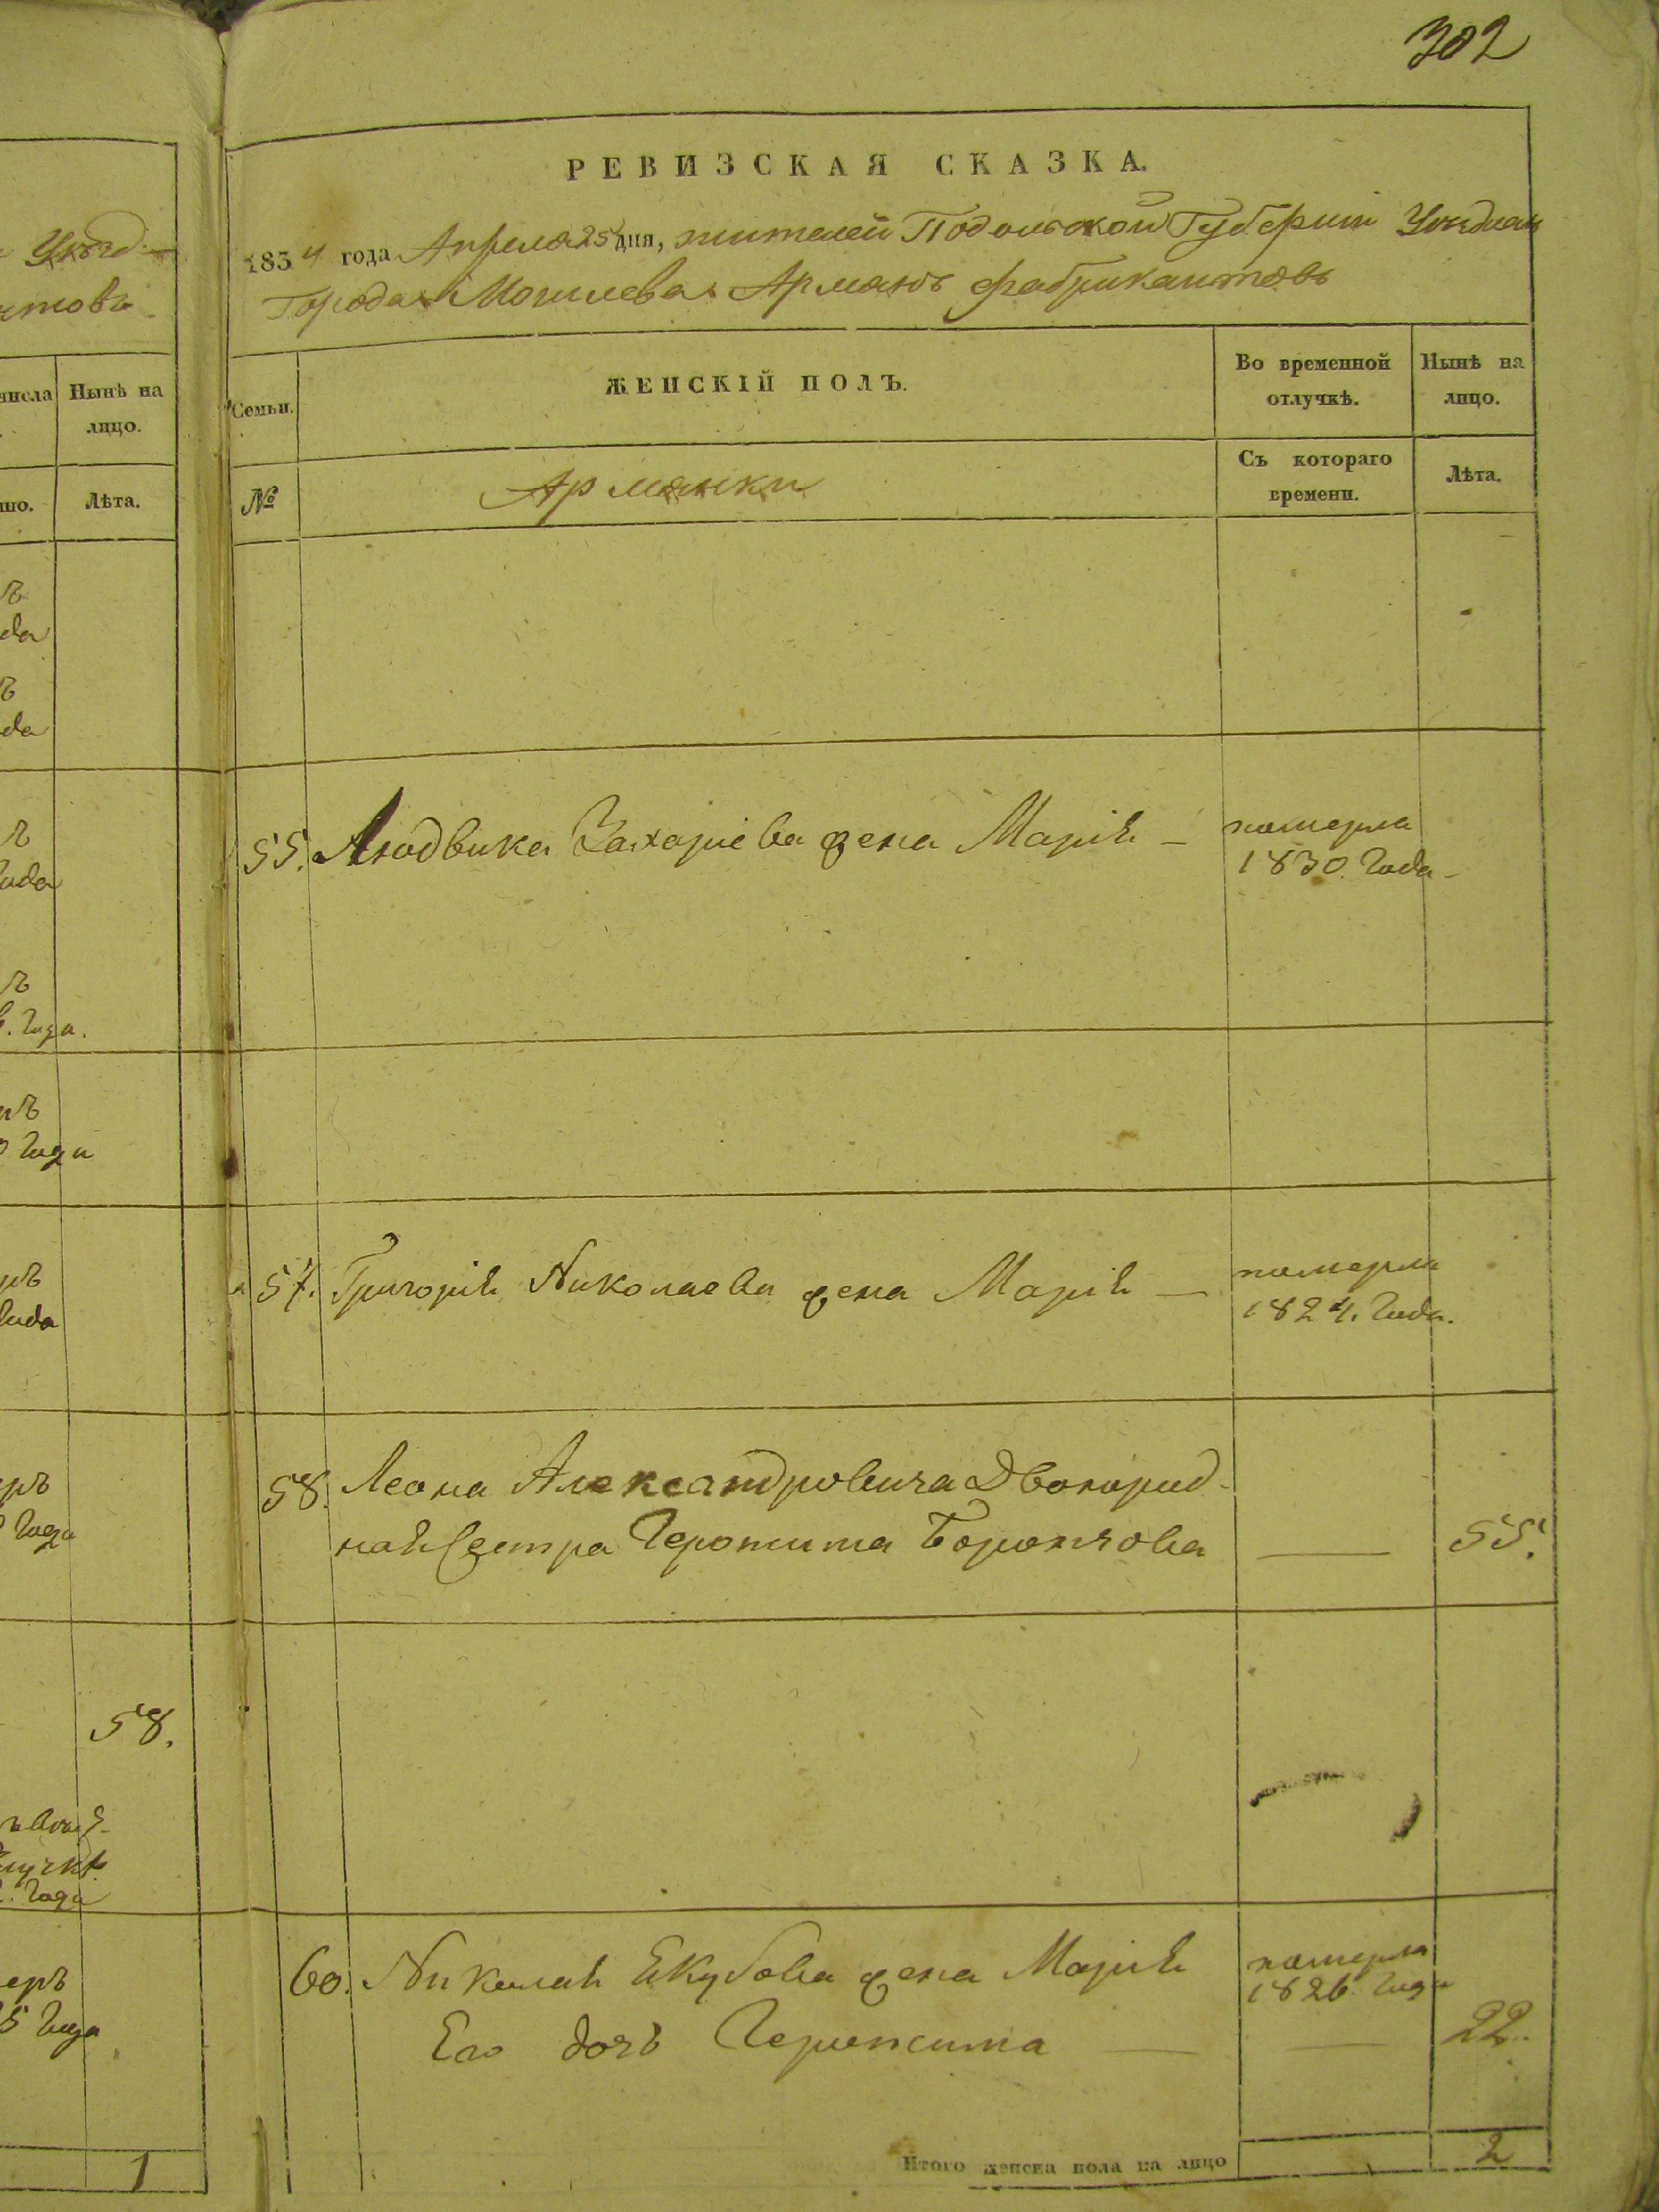 302
Уѣзд
нтовъ.
числа
Нынѣ на
лицо.
Лѣта.
да
да
года
года.
года
года
года
58.
года
еръ
5 года
1
РЕВИЗСКАЯ СКАЗКА.
1834 года Апреля 25 дня, жителей Подольской Губернии Уѣзднаго
Города Могилева Армянъ фабрикантовъ
Семьи.
ЖЕНСКІЙ ПОЛЪ.
Во временной
отлучкѣ.
Нынѣ на
лицо.
№
Армянки
Съ котораго
времени.
Лѣта.
55. Людвика Захаріева жена Марія —
померла
1830. года
57. Григорія Николаева жена Марія —
померла
1824. года.
58. Леона Александровича Двоюрид-
ная Сестра 55.
60. Николая Екубова жена Марія
померла
1826. года
Его дочъ — 22.
Итого женска пола на лицо 2